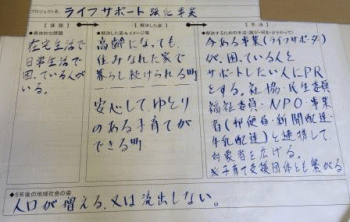 プロジェクト名 ライフサポート強化事業
【課題】
【解決した姿】
【手法】
●具体的な課題
在宅生活で
日常生活で
困っている人が
いる。
●解決した姿&イメージ等
高齢になっても、
住みなれた家で
暮らし続けられる町
安心してゆとり
のある子育てが
できる町
●解決するための手法(誰が・何を・分かって)
今ある事業(ライフサポータ)
が、困っている人と
サポートしたい人にPR
をする。社協・民生委員
福祉委員・NPO・事業
者(郵便局・新聞配達・
牛乳配達)と連携して、
対象者を広げる。
※子育て支援団体とも繋がる
●5年後の地域社会の姿
人口が増える、又は流出しない。